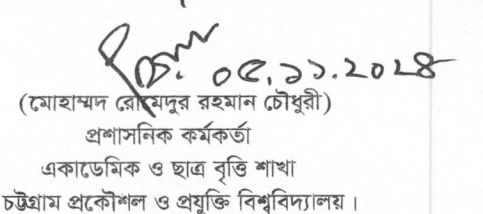 ০৫.১১.২০২৪
(মোহাম্মদ রহমান চৌধুরী)
প্রশাসনিক কর্মকর্তা
একাডেমিক ও ছাত্র বৃত্তি শাখা
চট্টগ্রাম প্রকৌশল ও প্রযুক্তি বিশ্ববিদ্যালয়।